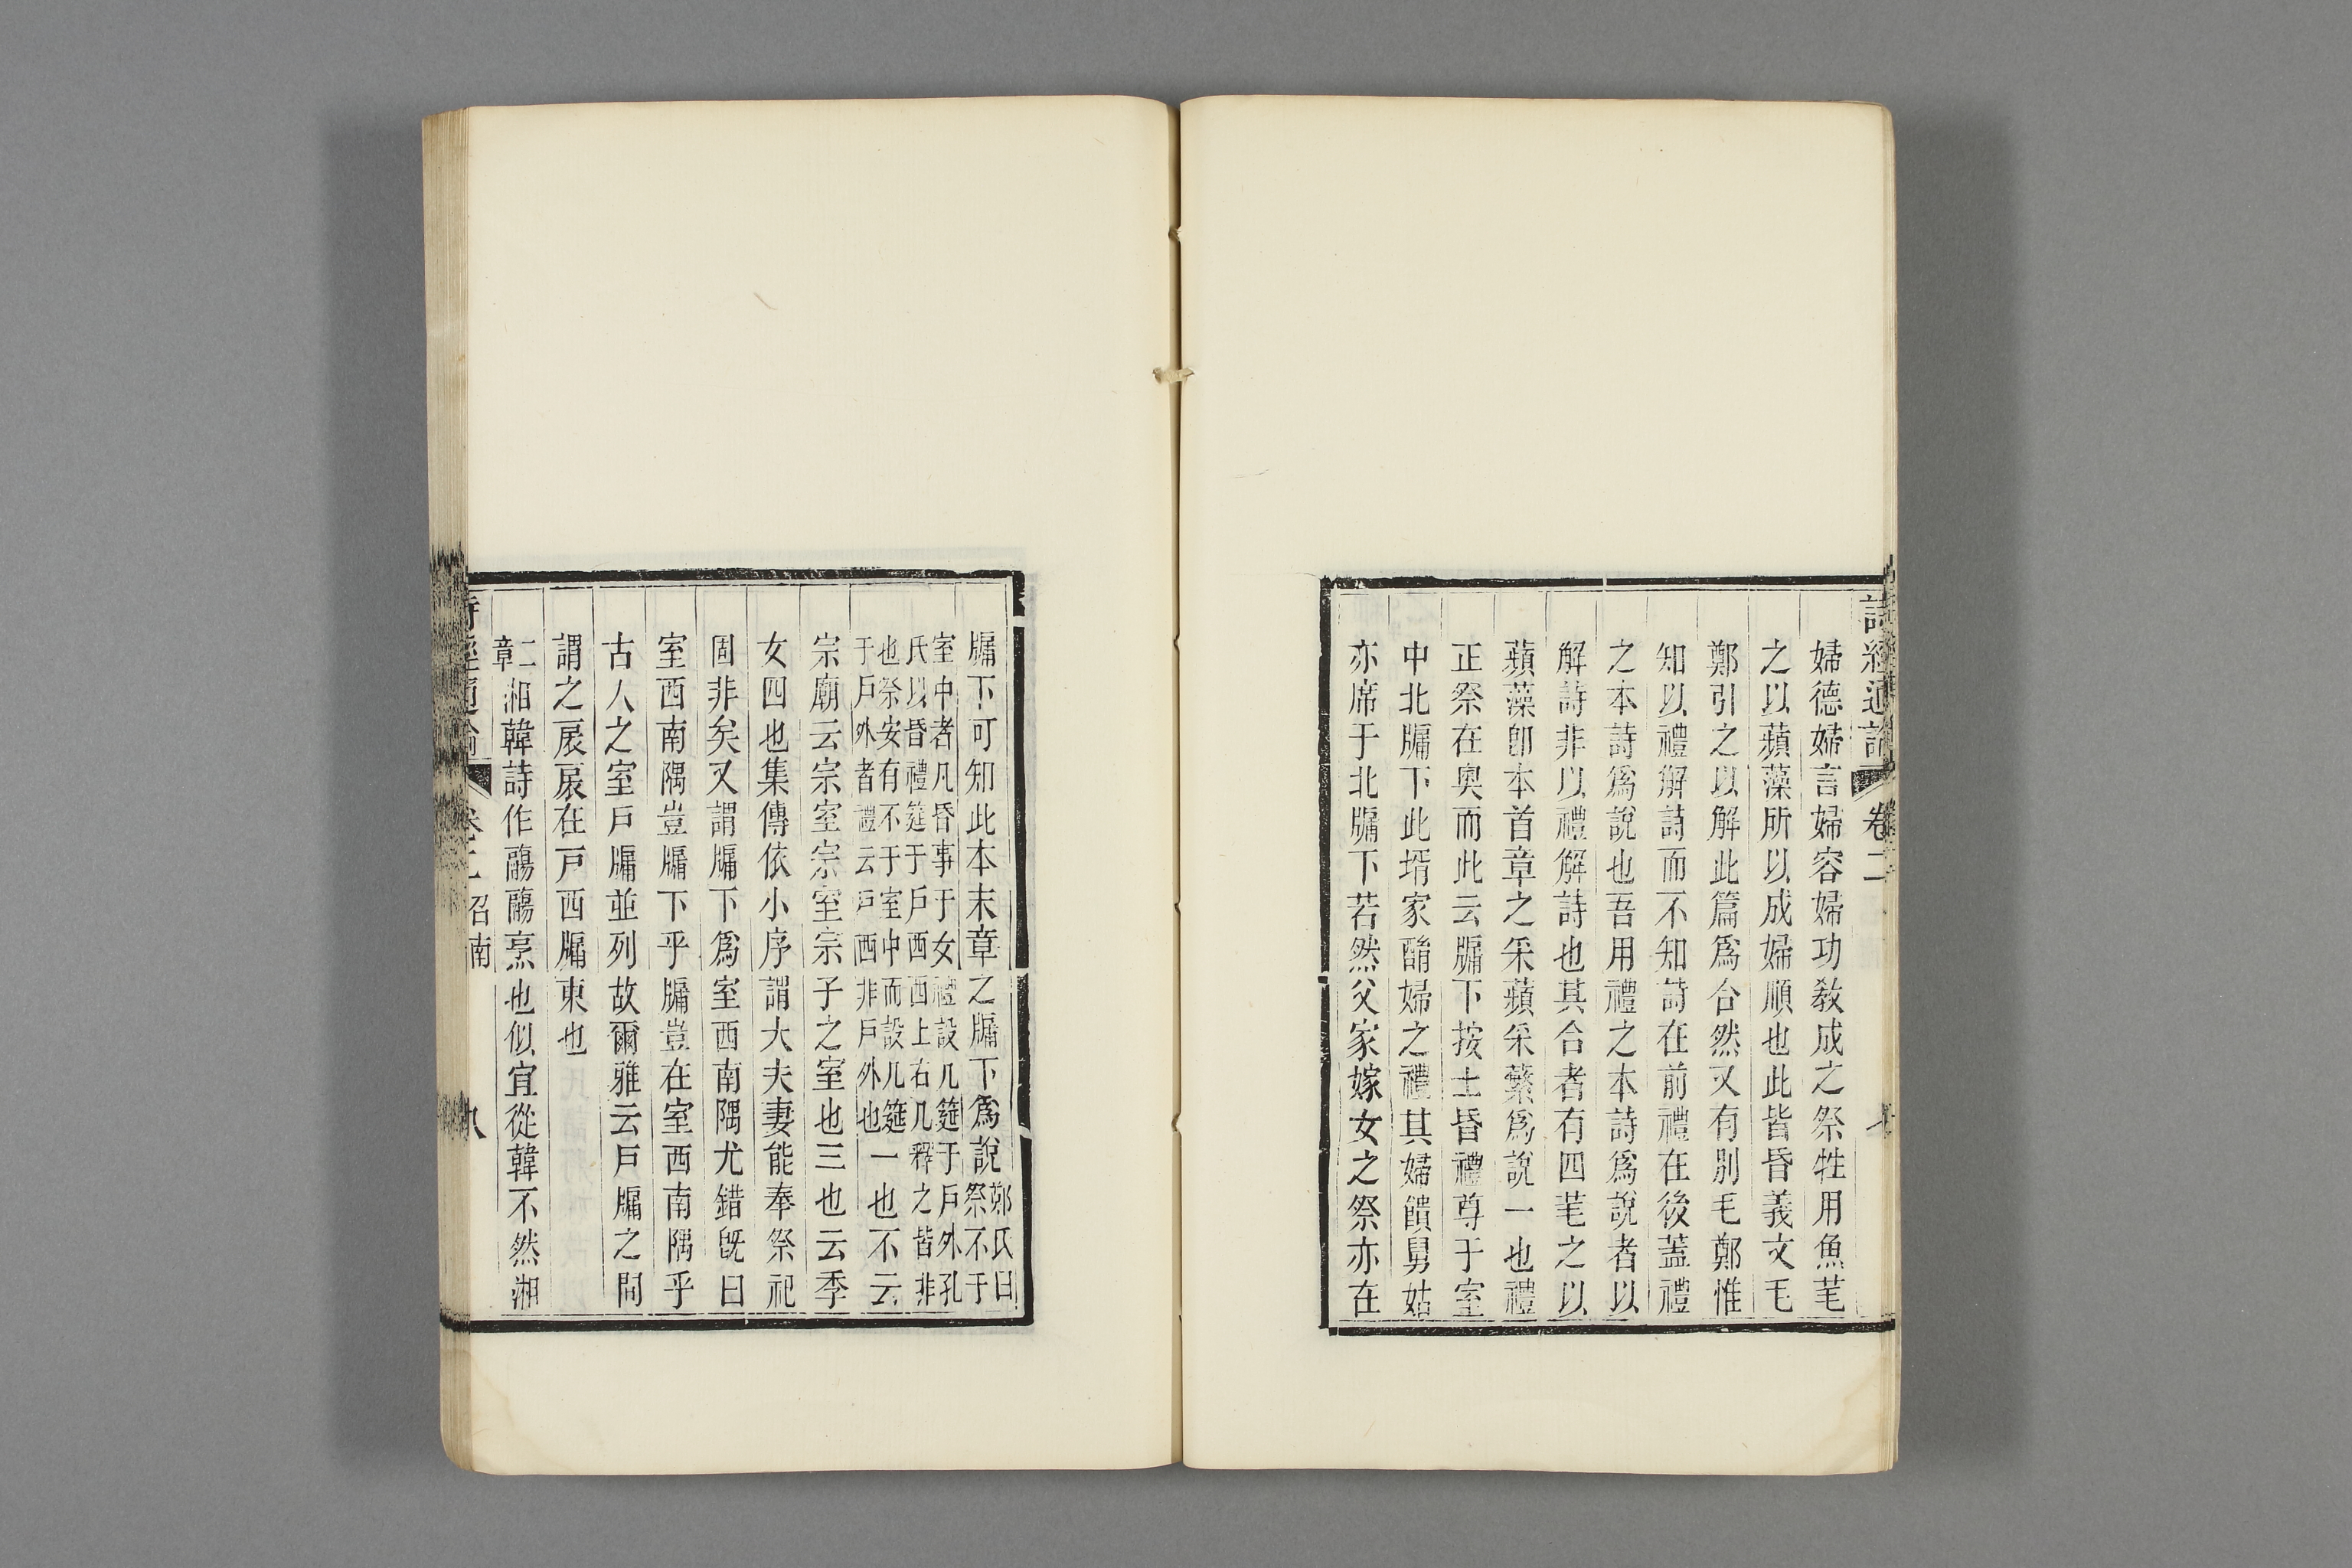 詩經通論 卷二 七
婦德婦言婦容婦功敎成之祭牲用魚芼
之以蘋藻所以成婦順也此皆昏義文毛
鄭引之以解此篇爲合然又有別毛鄭惟
知以禮解詩而不知詩在前禮在後蓋禮
之本詩爲說也吾用禮之本詩爲說者以
解詩非以禮解詩也其合者有四芼之以
蘋藻卽本首章之采蘋采蘩爲說一也禮
正祭在奧而此云牖下按士昏禮尊于室
中北牖下此壻家酳婦之禮其婦饋舅姑
亦席于北牖下若然父家嫁女之祭亦在
牖下可知此本末章之牖下爲說鄭氏曰祭不于
室中者凡昏事于女禮設几筵于戶外孔
氏以昏禮筵于戶西西上右几釋之皆非
也祭安有不于室中而設几筵
于戶外者禮云戶西非戶外也一也不云
宗廟云宗室宗室宗子之室也三也云季
女四也集傳依小序謂大夫妻能奉祭祀
固非矣又謂牖下爲室西南隅尤錯旣曰
室西南隅豈牖下乎牖豈在室西南隅乎
古人之室戶牖並列故爾雅云戶牖之間
謂之扆扆在戶西牖東也
二章湘韓詩作鬺鬺烹也似宜從韓不然湘
詩經通論 卷二 召南 八